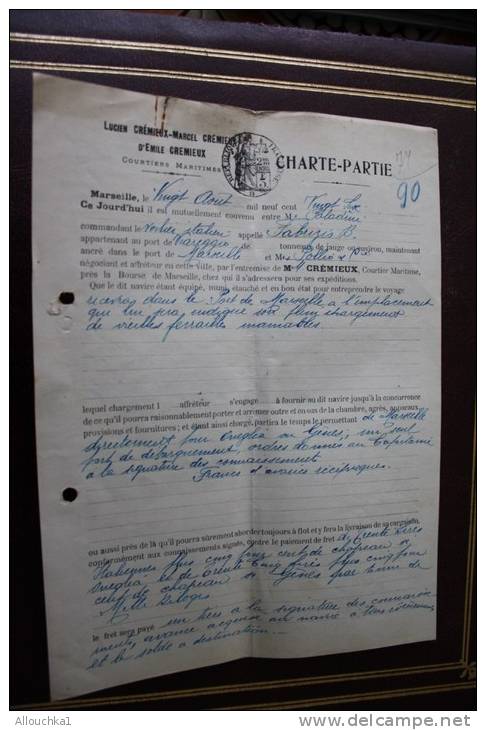 LUCIEN CRÉMIEUX-MARCEL CRÉMIEUX
D'EMILE CREMIEUX
COURTIERS MARITIMES
CHARTE-PARTIE
74
90
Marseille, le Vingt Août mil neuf cent Vingt Six
Ce Jourd'hui il est mutuellement convenu entre M Paladini
commandant le Voilier italien appelé Fabrizio B.
appartenant au port de Viareggio de tonneaux de jauge ou environ, maintenant
ancré dans le port de Marseille et Mrs
négociant et affréteur en cette ville, par l'entremise de Mr CRÉMIEUX, Courtier Maritime,
près la Bourse de Marseille, chez qui il s'adressera pour ses expéditions.
Que le dit navire étant équipé, muni, étanché et en bon état pour entreprendre le voyage
recevra dans le Port de Marseille à l'emplacement
qui lui sera indiqué son plein chargement
de vieilles ferrailles maniables.
lequel chargement l affréteur s'engage à fournir au dit navire jusqu'à concurrence
de ce qu'il pourra raisonnablement porter et arrimer outre et en sus de la chambre, agrès, apparaux
provisions et fournitures ; et étant ainsi chargé, partira le temps le permettant de Marseille
directement pour Oneglia ou Gênes, un seul
port de débarquement, ordres donnés au Capitaine
à la signature des connaissements
Francs d'avaries réciproques.
ou aussi près de là qu'il pourra sûrement aborder toujours à flot et y fera la livraison de sa cargaison,
conformément aux connaissements signés, contre le paiement de fret de Trente lires
Italiennes plus cinq pour cent de chapeau si
Oneglia et de Trente Cinq lires plus cinq pour
cent de chapeau si Gênes par tonne de
Mille kilogs
le fret sera payé un tiers à la signature des connaisse-
ments, avance acquise au navire à tous événements
et le solde à destination
Allouchka1
© www.delcampe.net